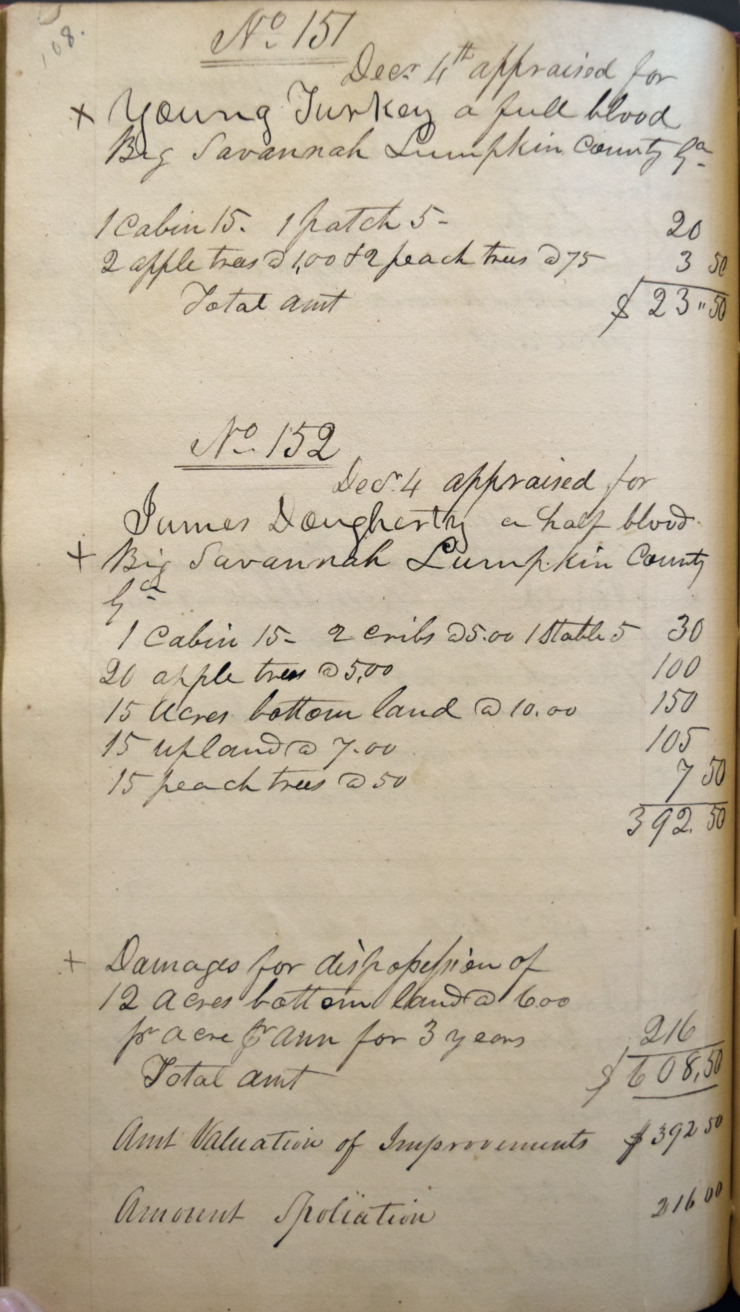 108.
No. 151
Decr 4th appraised for
+ Young Turkey a full blood
Big Savannah Lumpkin County Ga
1 Cabin 15. 1 patch 5- 20
2 apple trees @ 1,00 & 2 peach trees @ 75 3 50
Total amt $ 23"50
No. 152
Decr. 4 appraised for
James Dougherty a half blood
+ Big Savannah Lumpkin County
Ga
1 Cabin 15- 2 cribs @ 5.00 1 Stable 5 30
20 apple trees @ 5,00 100
15 Acres bottom land @ 10.00 150
15 upland @ 7.00 105
15 peach trees @ 50 7 50
392.50
+ Damages for dispossession of
12 Acres bottom land @ 600
pr acre pr ann for 3 years 216
Total amt $ 608,50
Amt Valuation of Improvements $392 50
Amount Spoliation 216 00